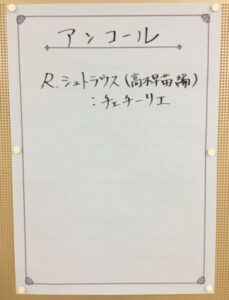 アンコール
R.シュトラウス(高木早苗編)
:チェチーリエ